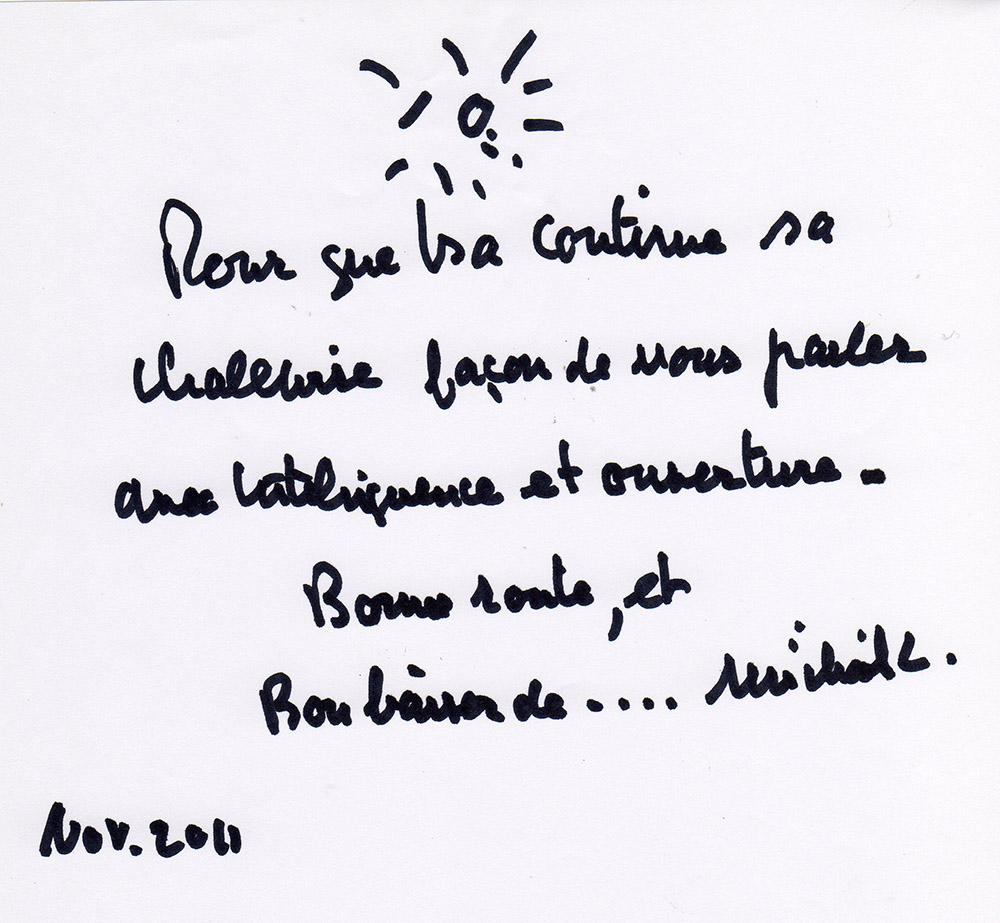 Pour que Isa continue sa
chaleureuse façon de nous parler
avec intelligence et ouverture.
Bonne route, et
Bon baiser de ....
Nov. 2011